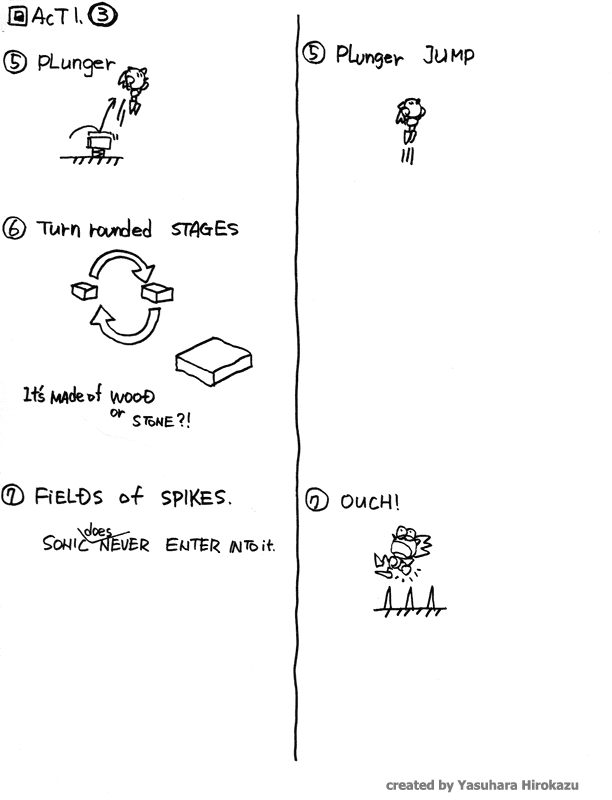 ACT 1. ③
⑤ PLunger
⑥ Turn rounded STAGES
It's MADE of WOOD
or STONE?!
⑦ FiELDS of SPIKES.
does
SONIC NEVER ENTER INTO it.
⑤ PLunger JUMP
⑦ OUCH!
created by Yasuhara Hirokazu